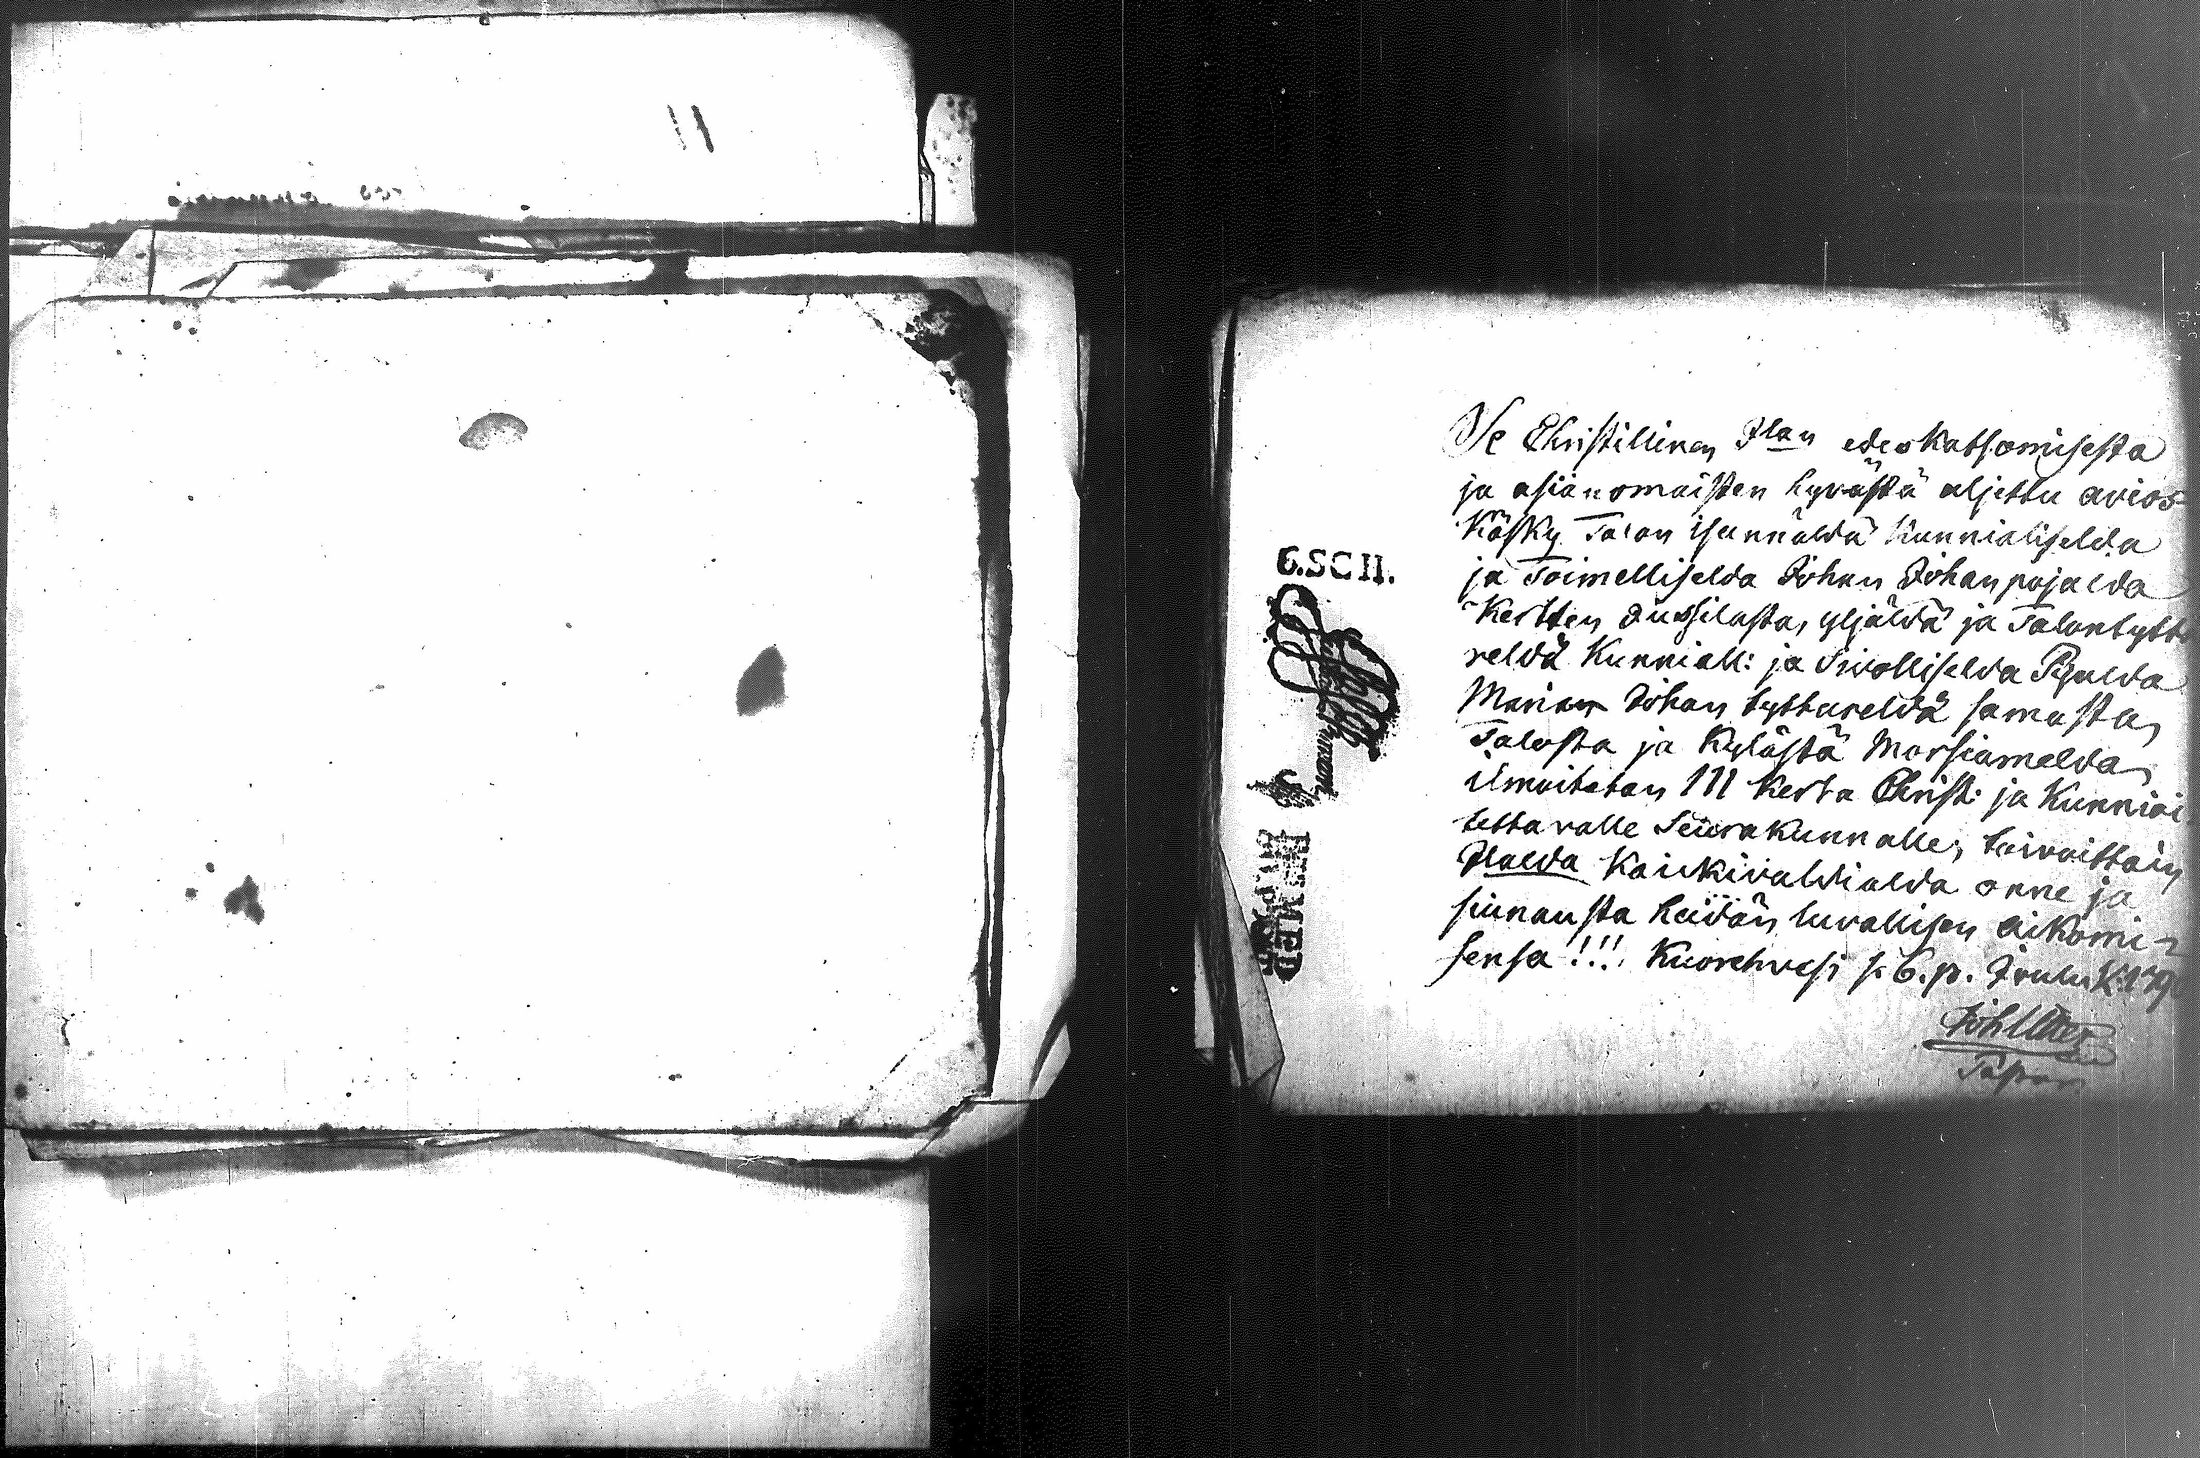 Se Christillinen Ilan edeskatsomisesta
ja asianomaisten hyvästä aljettu avios-
Käsky Talon isännäldä Kunnialiselda
ja Toimelliselda Johan Johanpojalda
Kertten Jussilasta, yljäldä ja Talontyttä
reldä Kunniall: ja Sivolliselda Pigalda
Marian Johan tyttäreldä samasta
Talosta ja Kylästä Morsiamelda
ilmoitetan III Kerta Christ: ja Kunnioi
tettavalle Seurakunnalle; toivoittain
Ilalda Kaickivaldialda onne ja
siunausta heidän luvallisen aikomi-
sensa!!! Kuorehvesi s. 6. p. Joulu K. 179
Joh
6.SC II.